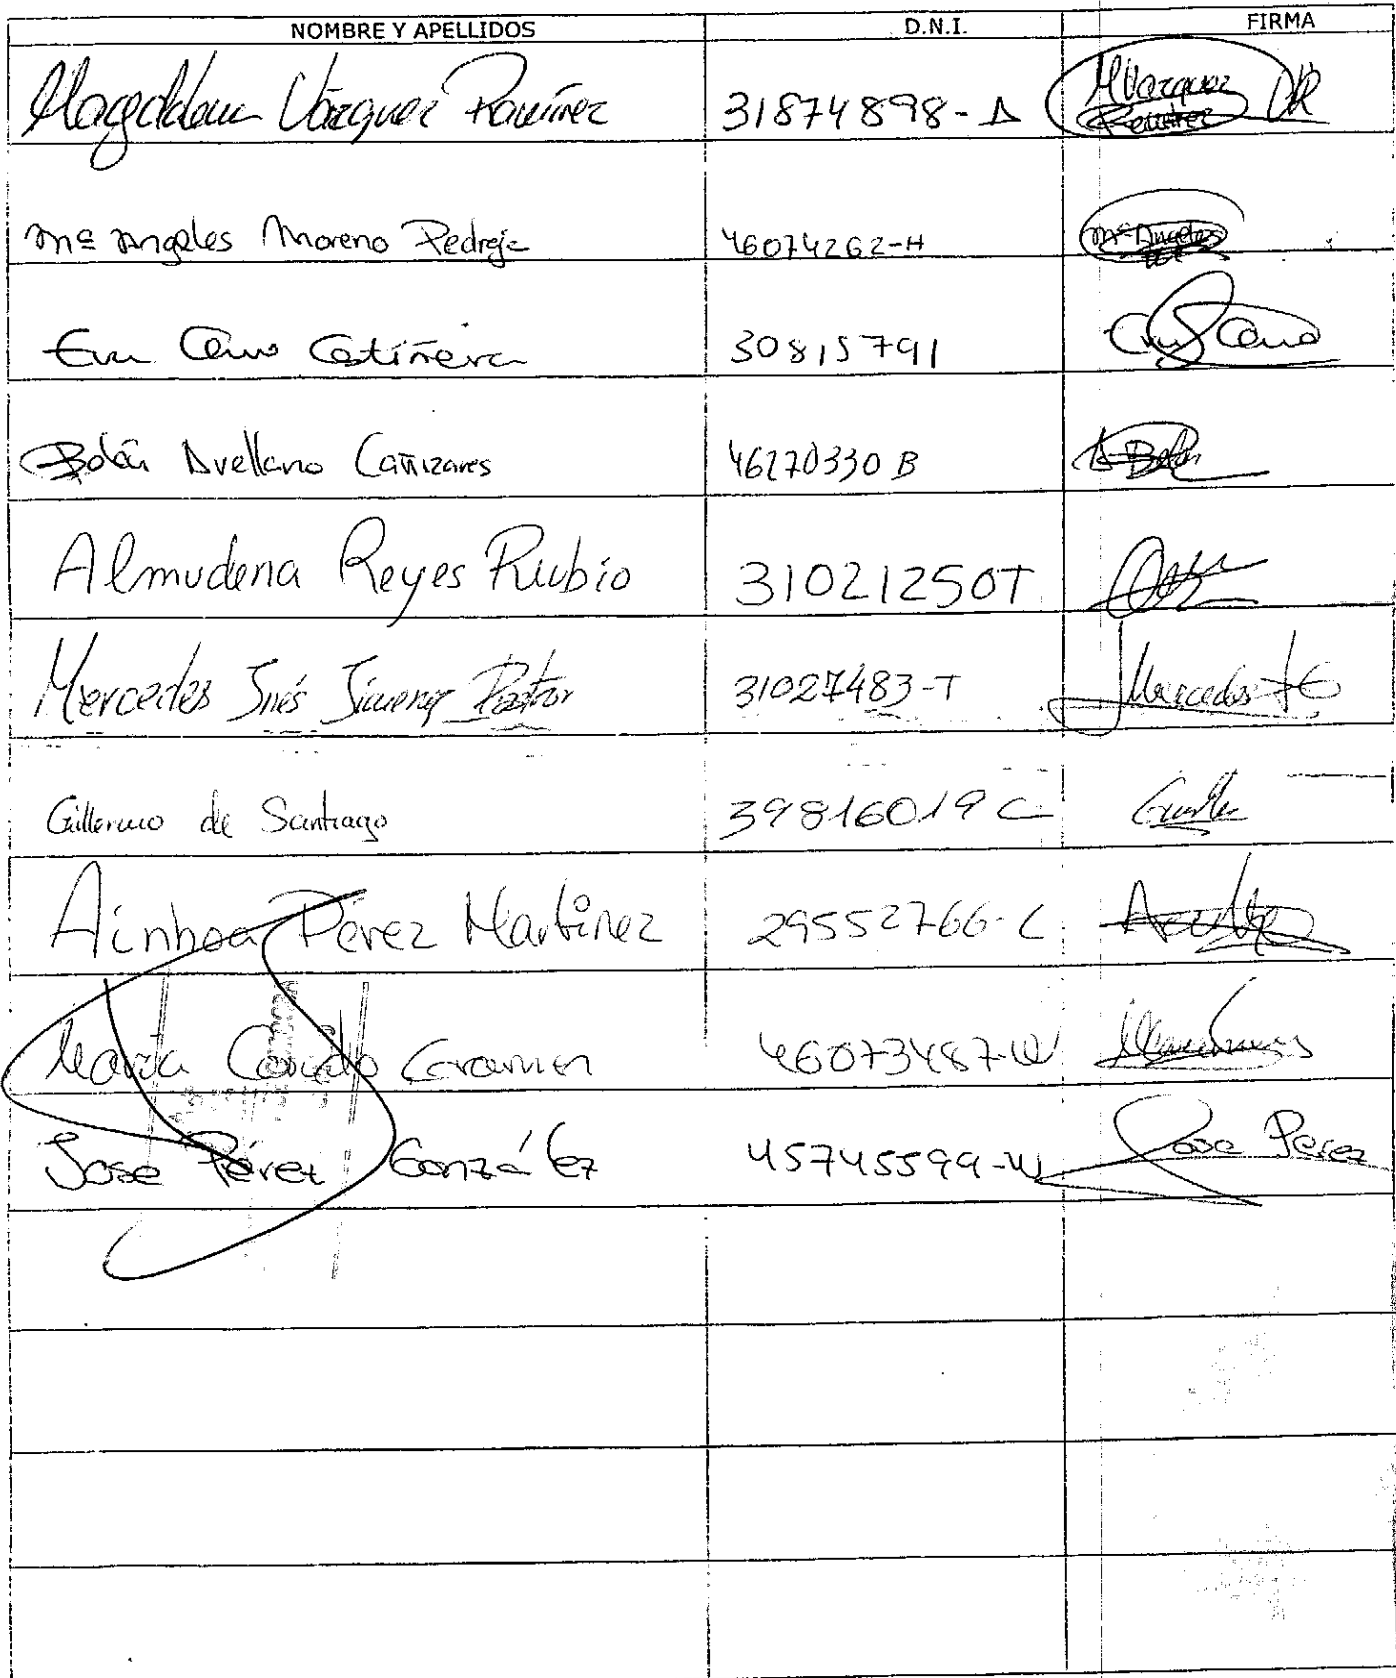 NOMBRE Y APELLIDOS D.N.I. FIRMA
Magdalena Vázquez Ramírez 31874898-A MVazquez Ramírez
Mª Angeles Moreno Pedreja 46074262-H Mª Angeles
Eva Cano 30815791 Cano
Belén Avellano Cañizares 46270330 B Belén
Almudena Reyes Rubio 31021250T
Mercedes Inés Jimenez Pastor 31027483-T Mercedes
Guillermo de Santiago 39816019 C
Ainhoa Pérez Martínez 29552766-C
María 46073487-W
Jose Pérez González 45745599-W Jose Perez